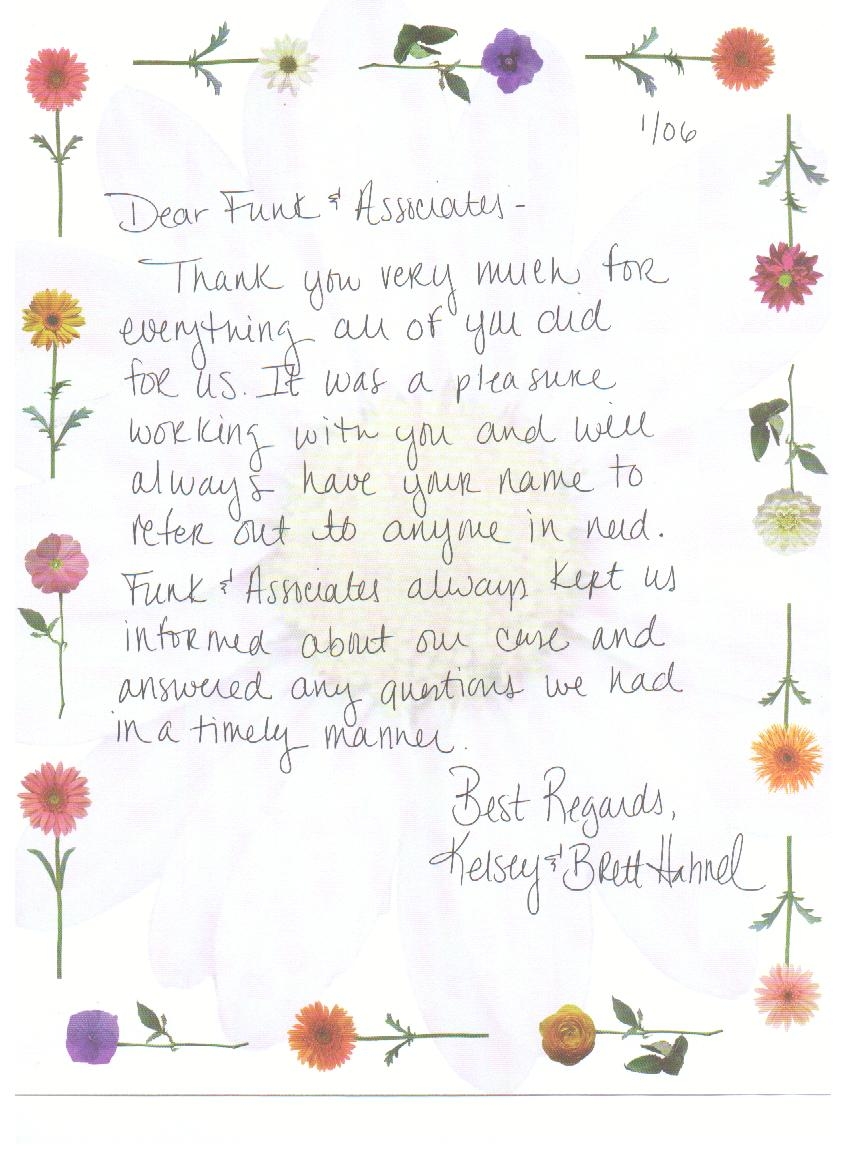 1/06
Dear Funk & Associates -
Thank you very much for
everything all of you did
for us. It was a pleasure
working with you and will
always have your name to
refer out to anyone in need.
Funk & Associates always kept us
informed about our case and
answered any questions we had
in a timely manner.
Best Regards,
Kelsey & Brett Hahnel